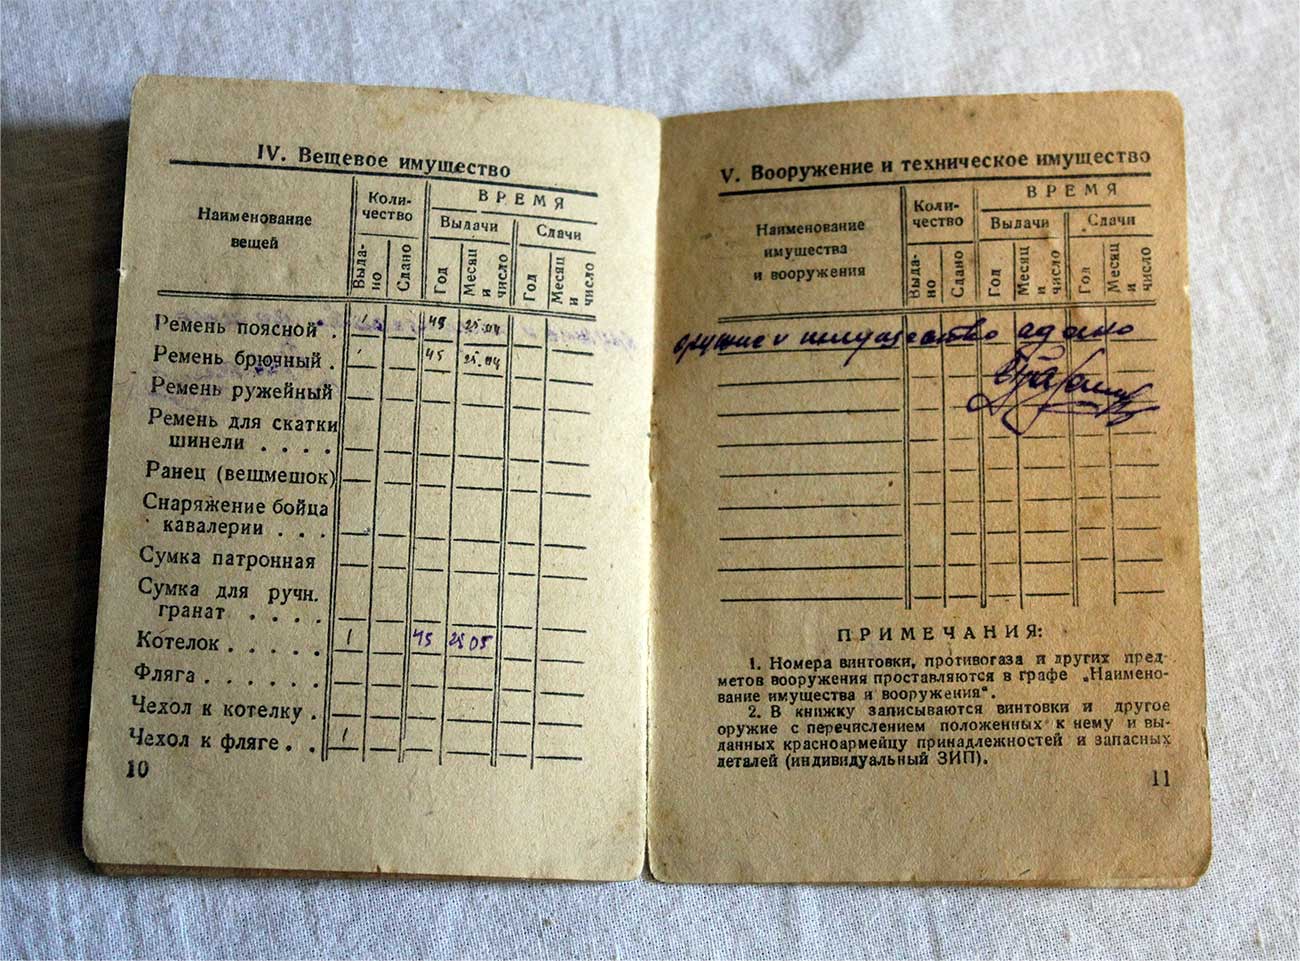 IV. Вещевое имущество
Наименование
вещей
Коли-
чество
ВРЕМЯ
Выдачи
Сдачи
Выда-
но
Сдано
Год
Месяц
и
число
Год
Месяц
и
число
Ремень поясной . 1 45 25.04
Ремень брючный . 1 45 25.04
Ремень ружейный
Ремень для скатки
шинели . . . .
Ранец (вещмешок)
Снаряжение бойца
кавалерии . . .
Сумка патронная
Сумка для ручн.
гранат . . . .
Котелок . . . . . 1 45 25 05
Фляга . . . . . .
Чехол к котелку .
Чехол к фляге . . 1
10
V. Вооружение и техническое имущество
Наименование
имущества
и вооружения
Коли-
чество
ВРЕМЯ
Выдачи
Сдачи
Выда-
но
Сдано
Год
Месяц
и
число
Год
Месяц
и
число
оружие и имущество сдано
ПРИМЕЧАНИЯ:
1. Номера винтовки, противогаза и других пред-
метов вооружения проставляются в графе „Наимено-
вание имущества и вооружения“.
2. В книжку записываются винтовки и другое
оружие с перечислением положенных к нему и вы-
данных красноармейцу принадлежностей и запасных
деталей (индивидуальный ЗИП).
11